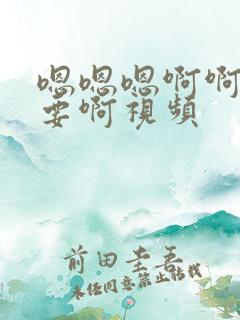 嗯嗯嗯啊啊
要啊視頻
前田圭吾
未经同意禁止转载